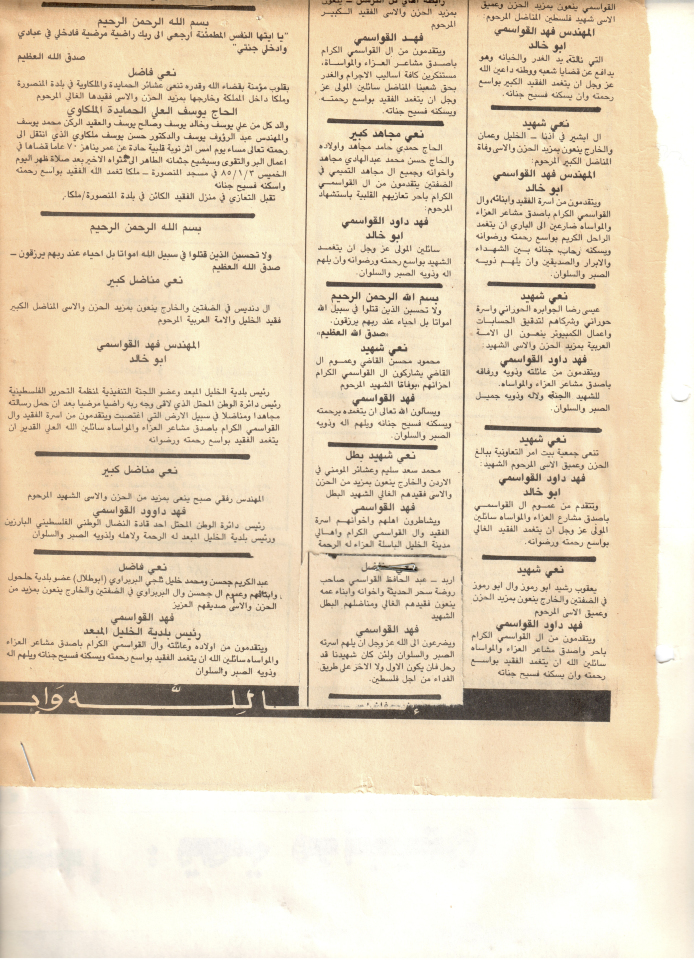 القواسمي ينعون بمزيد الحزن وعميق
الاسى شهيد فلسطين المناضل المرحوم:
المهندس فهد القواسمي
ابو خالد
التي نالته يد الغدر والخيانه وهو
يدافع عن قضايا شعبه ووطنه داعين الله
عز وجل ان يتغمد الفقيد الكبير بواسع
رحمته وان يسكنه فسيح جناته.
نعي شهيد
ال ابشير في اذنا – الخليل وعمان
والخارج ينعون بمزيد الحزن والاسى وفاة
المناضل الكبير المرحوم:
المهندس فهد القواسمي
ابو خالد
ويتقدمون من اسرة الفقيد وابنائه وال
القواسمي الكرام باصدق مشاعر العزاء
والمواساه ضارعين الى الباري ان يتغمد
الراحل الكريم بواسع رحمته ورضوانه
ويسكنه رحاب جناته بين الشهداء
والابرار والصديقين وان يلهم ذويه
الصبر والسلوان.
نعي شهيد
عيسى رضا الجوابره الحوراني واسرة
حوراني وشركاهم لتدقيق الحسابات
واعمال الكمبيوتر ينعون الى الامة
العربية بمزيد الحزن والاسى الشهيد:
فهد داود القواسمي
ويتقدمون من عائلته وذويه ورفاقه
باصدق مشاعر العزاء والمواساه.
للشهيد الجنة ولاله وذويه جميل
الصبر والسلوان.
نعي شهيد
تنعى جمعية بيت امر التعاونية ببالغ
الحزن وعميق الاسى المرحوم الشهيد:
فهد داود القواسمي
ابو خالد
وتتقدم من عموم ال القواسمي
باصدق مشارع العزاء والمواساه سائلين
المولى عز وجل ان يتغمد الفقيد الغالي
بواسع رحمته ورضوانه.
نعي شهيد
يعقوب رشيد ابو رموز وال ابو رموز
في الضفتين والخارج ينعون بمزيد الحزن
وعميق الاسى المرحوم
فهد داود القواسمي
ويتقدمون من ال القواسمي الكرام
باحر واصدق مشاعر العزاء والمواساه
سائلين الله ان يتغمد الفقيد بواسع
رحمته وان يسكنه فسيح جناته
بمزيد الحزن والاسى الفقيد الكبير
المرحوم
فهد القواسمي
ويتقدمون من ال القواسمي الكرام
باصدق مشاعر العزاء والمواساة،
مستنكرين كافة اساليب الاجرام والغدر
بحق شعبنا المناضل سائلين المولى عز
وجل ان يتغمد الفقيد بواسع رحمته
ويسكنه فسيح جناته.
نعي مجاهد كبير
الحاج حمدي حامد مجاهد واولاده
والحاج حسن محمد عبدالهادي مجاهد
واخوانه وجميع ال مجاهد التميمي في
الضفتين يتقدمون من ال القواسمي
الكرام باحر تعازيهم القلبية باستشهاد
المرحوم:
فهد داود القواسمي
ابو خالد
سائلين المولى عز وجل ان يتغمد
الشهيد بواسع رحمته ورضوانه وان يلهم
اله وذويه الصبر والسلوان.
بسم الله الرحمن الرحيم
ولا تحسبين الذين قتلوا في سبيل الله
امواتا بل احياء عند ربهم يرزقون.
«صدق الله العظيم»
نعي شهيد
محمود محسن القاضي وعموم ال
القاضي يشاركون ال القواسمي الكرام
احزانهم بوفاة الشهيد المرحوم
فهد القواسمي
ويسالون الله تعالى ان يتغمده برحمته
ويسكنه فسيح جناته ويلهم اله وذويه
الصبر والسلوان.
نعي شهيد بطل
محمد سعد سليم وعشائر المومني في
الاردن والخارج ينعون بمزيد من الحزن
والاسى فقيدهم الغالي الشهيد البطل
فهد القواسمي
ويشاطرون اهلهم واخوانهم اسرة
الفقيد وال القواسمي الكرام واهالي
مدينة الخليل الباسلة العزاء له الرحمة
اربد – عبد الحافظ القواسمي صاحب
روضة سحر الحديثة واخوانه وابناء عمه
ينعون فقيدهم الغالي ومناضلهم البطل
الشهيد
فهد القواسمي
ويضرعون الى الله عز وجل ان يلهم اسرته
الصبر والسلوان ولئن كان شهيدنا قد
رحل فان يكون الاول ولا الاخر على طريق
الفداء من اجل فلسطين.
بسم الله الرحمن الرحيم
"يا ايتها النفس المطمئنة ارجعي الى ربك راضية مرضية فادخلي في عبادي
وادخلي جنتي"
صدق الله العظيم
نعي فاضل
بقلوب مؤمنة بقضاء الله وقدره تنعى عشائر الحمايدة والملكاوية في بلدة المنصورة
وملكا داخل المملكة وخارجها بمزيد الحزن والاسى فقيدها الغالي المرحوم
الحاج يوسف العلي الحمايدة الملكاوي
والد كل من علي يوسف وخالد يوسف وصالح يوسف والعقيد الركن محمد يوسف
والمهندس عبد الرؤوف يوسف والدكتور حسن يوسف ملكاوي الذي انتقل الى
رحمته تعالى مساء يوم امس اثر نوبة قلبية حادة عن عمر يناهز ٧٠ عاما قضاها في
اعمال البر والتقوى وسيشيع جثمانه الطاهر الى مثواه الاخير بعد صلاة ظهر اليوم
الخميس ٨٥/١/٣ في مسجد المنصورة – ملكا تغمد الله الفقيد بواسع رحمته
واسكنه فسيح جنانه
تقبل التعازي في منزل الفقيد الكائن في بلدة المنصورة/ملكا.
بسم الله الرحمن الرحيم
ولا تحسبين الذين قتلوا في سبيل الله امواتا بل احياء عند ربهم يرزقون –
صدق الله العظيم
نعي مناضل كبير
ال دنديس في الضفتين والخارج ينعون بمزيد الحزن والاسى المناضل الكبير
فقيد الخليل والامة العربية المرحوم
المهندس فهد القواسمي
ابو خالد
رئيس بلدية الخليل المبعد وعضو اللجنة التنفيذية لمنظمة التحرير الفلسطينية
رئيس دائرة الوطن المحتل الذي لاقى وجه ربه راضيا مرضيا بعد ان حمل رسالته
مجاهدا ومناضلا في سبيل الارض التي اغتصبت ويتقدمون من اسرة الفقيد وال
القواسمي الكرام باصدق مشاعر العزاء والمواساه سائلين الله العلي القدير ان
يتغمد الفقيد بواسع رحمته ورضوانه
نعي مناضل كبير
المهندس رفقي صبح ينعى بمزيد من الحزن والاسى الشهيد المرحوم
فهد داوود القواسمي
رئيس دائرة الوطن المحتل احد قادة النضال الوطني الفلسطيني البارزين
ورئيس بلدية الخليل المبعد له الرحمة ولاهله ولذويه الصبر والسلوان
نعي فاضل
عبدالكريم جحسن ومحمد خليل تلجي البربراوي (ابوطلال) عضو بلدية حلحول
وابنائهم وعموم ال جحسن وال البربراوي في الضفتين والخارج ينعون بمزيد من
الحزن والاسى صديقهم العزيز
فهد القواسمي
رئيس بلدية الخليل المبعد
ويتقدمون من اولاده وعائلته وال القواسمي الكرام باصدق مشاعر العزاء
والمواساه سائلين الله ان يتغمد الفقيد بواسع رحمته ويسكنه فسيح جناته ويلهم اله
وذويه الصبر والسلوان